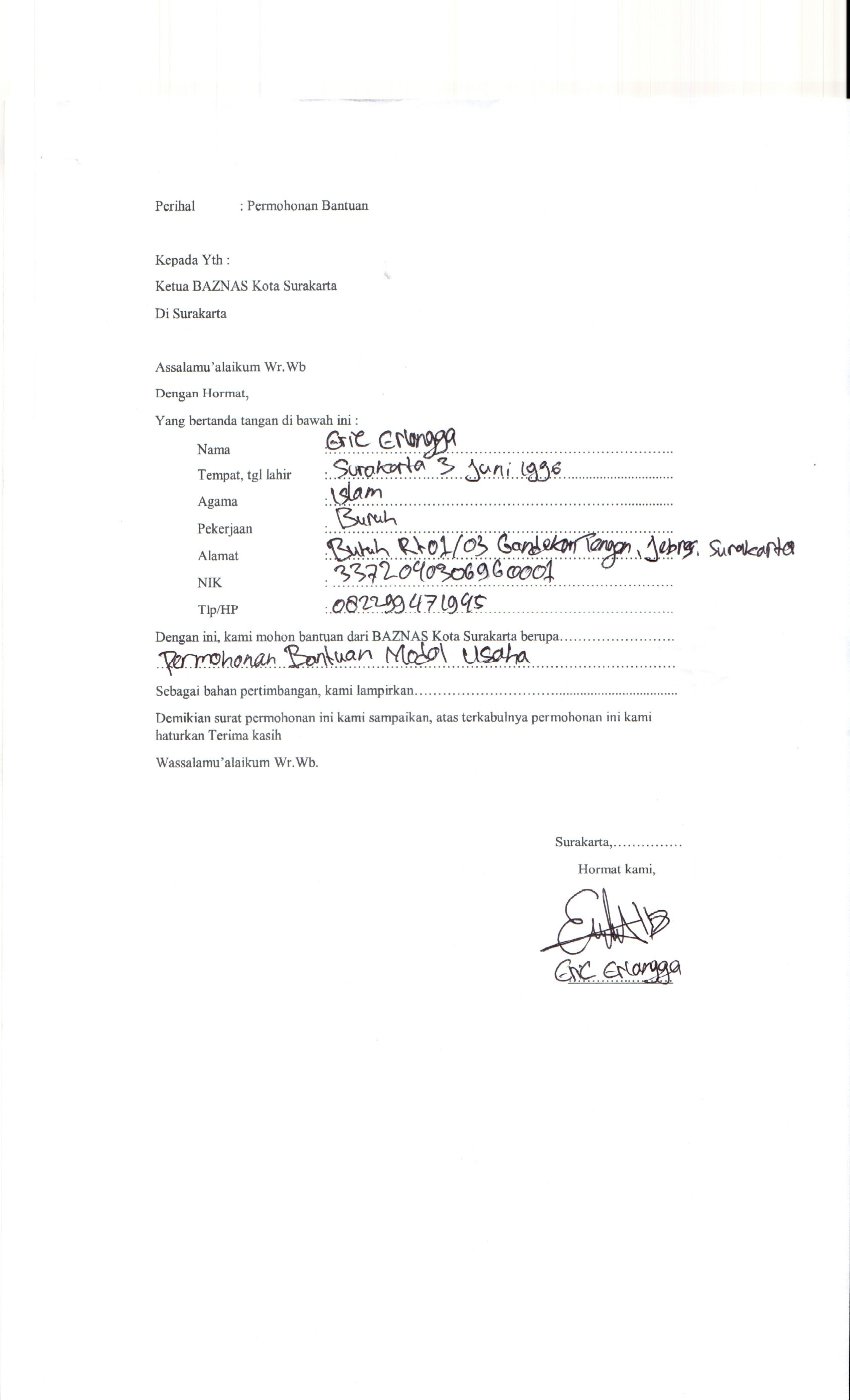 Perihal : Permohonan Bantuan
Kepada Yth :
Ketua BAZNAS Kota Surakarta
Di Surakarta
Assalamu'alaikum Wr.Wb
Dengan Hormat,
Yang bertanda tangan di bawah ini :
Nama Eric Erlangga
Tempat, tgl lahir : Surakarta 3 Juni 1996
Agama : Islam
Pekerjaan : Buruh
Alamat : Butuh Rt01/03 Gandekan Tangan, Jebres. Surakarta
NIK : 3372040306960001
Tlp/HP : 082299471995
Dengan ini, kami mohon bantuan dari BAZNAS Kota Surakarta berupa........................
Permohonan Bantuan Modal Usaha
Sebagai bahan pertimbangan, kami lampirkan........................................................
Demikian surat permohonan ini kami sampaikan, atas terkabulnya permohonan ini kami
haturkan Terima kasih
Wassalamu'alaikum Wr.Wb.
Surakarta,...............
Hormat kami,
Eric Erlangga